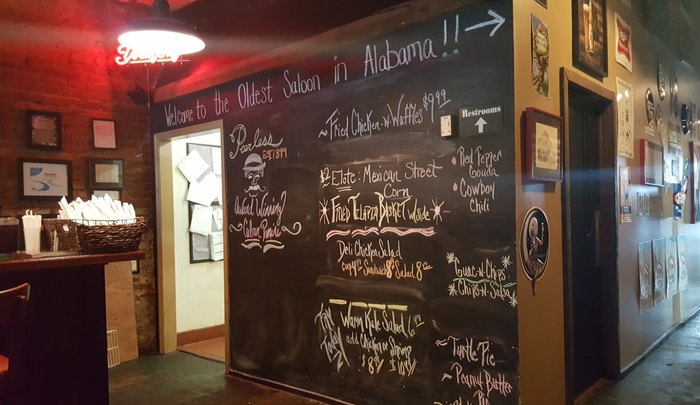 Welcome to the Oldest Saloon in Alabama!!
Peerless
EST 1899
Award Winning
~Fried Chicken-N-Waffles $9.99
Restrooms
Elote: Mexican Street
Corn
Fried Tilapia Basket w/side
Deli Chicken Salad
Sandwich 8 Salad 8
Try
Today!
Warm Kale Salad 6
add Chicken or Shrimp
• Red Pepper
Gouda
• Cowboy
Chili
Guac-N-Chips
Chips-N-Salsa
~ Turtle Pie
~ Peanut Butter
Pie